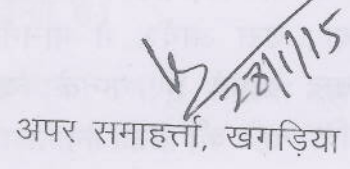 28/1/15
अपर समाहर्त्ता, खगड़िया